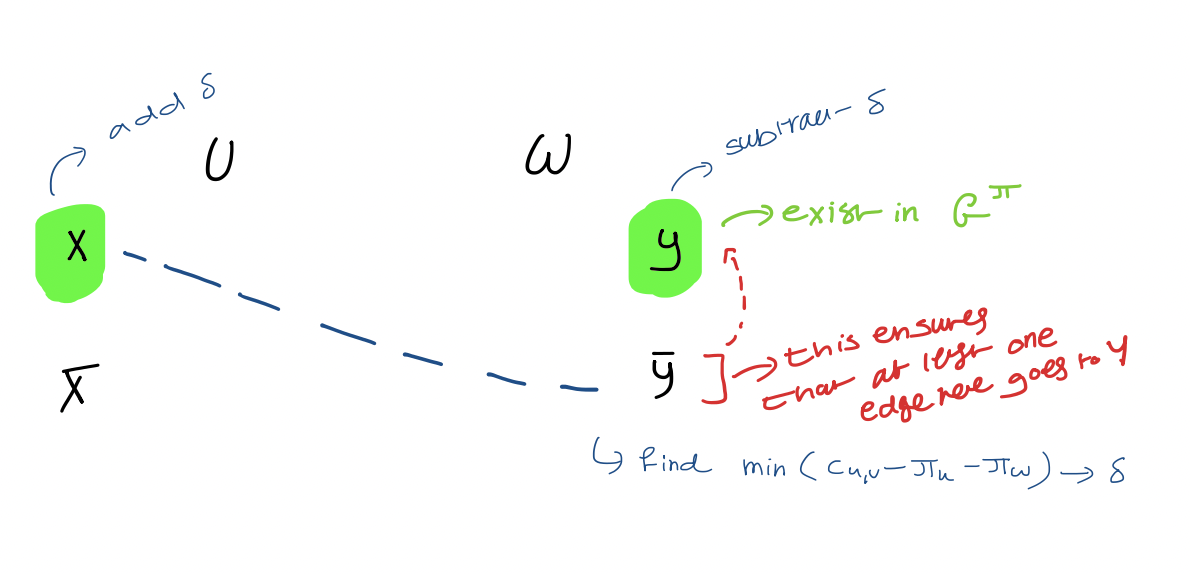 add δ
U
ω
subtrau- δ
X
y
exist in G^π
X̄
ȳ
this ensures
that at least one
edge here goes to y
find min (cu,v - πu - πω) → δ